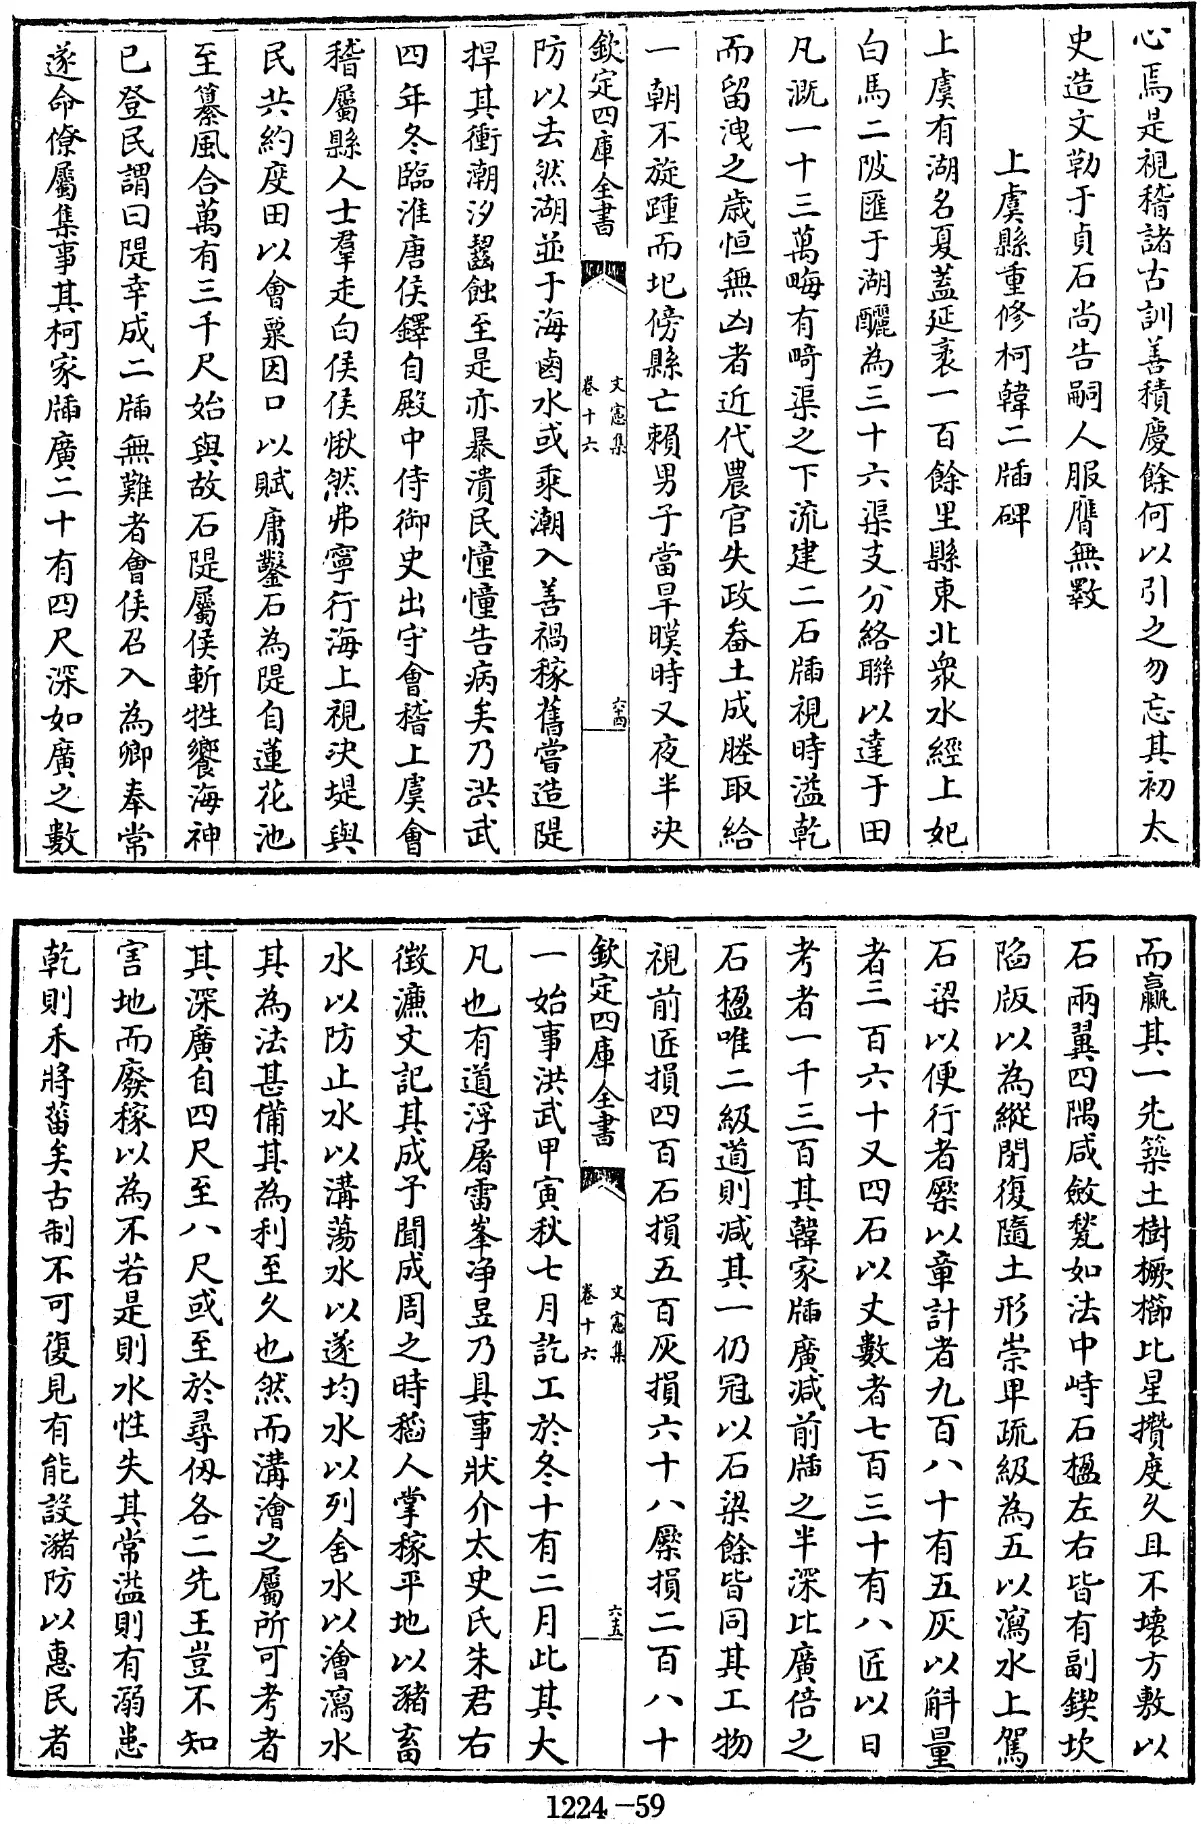 心焉是視稽諸古訓善積慶餘何以引之勿忘其初太
史造文勒于貞石尚告嗣人服膺無斁
上虞縣重修柯韓二牐碑
上虞有湖名夏蓋延袤一百餘里縣東北衆水經上妃
白馬二陂匯于湖釃為三十六渠支分絡聯以達于田
凡溉一十三萬畮有畸渠之下流建二石牐視時溢乾
而留洩之歳恒無凶者近代農官失政畚土成塍取給
一朝不旋踵而圮傍縣亡賴男子當旱暵時又夜半決
欽定四庫全書
文憲集
卷十六
六十四
防以去然湖並于海鹵水或乘潮入善禍稼舊嘗造隄
捍其衝潮汐齧蝕至是亦暴潰民憧憧告病矣乃洪武
四年冬臨淮唐侯鐸自殿中侍御史出守會稽上虞會
稽屬縣人士羣走白侯侯愀然弗寧行海上視決堤與
民共約度田以會粟因口以賦庸鑿石為隄自蓮花池
至纂風合萬有三千尺始與故石隄屬侯斬牲饗海神
已登民謂曰隄幸成二牐無難者會侯召入為卿奉常
遂命僚屬集事其柯家牐廣二十有四尺深如廣之數
而贏其一先築土樹橛櫛比星攢度久且不壞方敷以
石兩翼四隅咸斂甃如法中峙石楹左右皆有副鍥坎
陷版以為縱閉復隨土形崇卑疏級為五以瀉水上駕
石梁以便行者檿以章計者九百八十有五灰以斛量
者三百六十又四石以丈數者七百三十有八匠以日
考者一千三百其韓家牐廣減前牐之半深比廣倍之
石楹唯二級道則减其一仍冠以石梁餘皆同其工物
視前匠損四百石損五百灰損六十八檿損二百八十
欽定四庫全書
文憲集
卷十六
六十五
一始事洪武甲寅秋七月訖工於冬十有二月此其大
凡也有道浮屠雷峯净昱乃具事狀介太史氏朱君右
徴濂文記其成予聞成周之時稻人掌稼平地以瀦畜
水以防止水以溝蕩水以遂均水以列舍水以澮瀉水
其為法甚備其為利至久也然而溝澮之屬所可考者
其深廣自四尺至八尺或至於尋仭各二先王豈不知
害地而廢稼以為不若是則水性失其常溢則有溺患
乾則禾將菑矣古制不可復見有能設瀦防以惠民者
1224-59